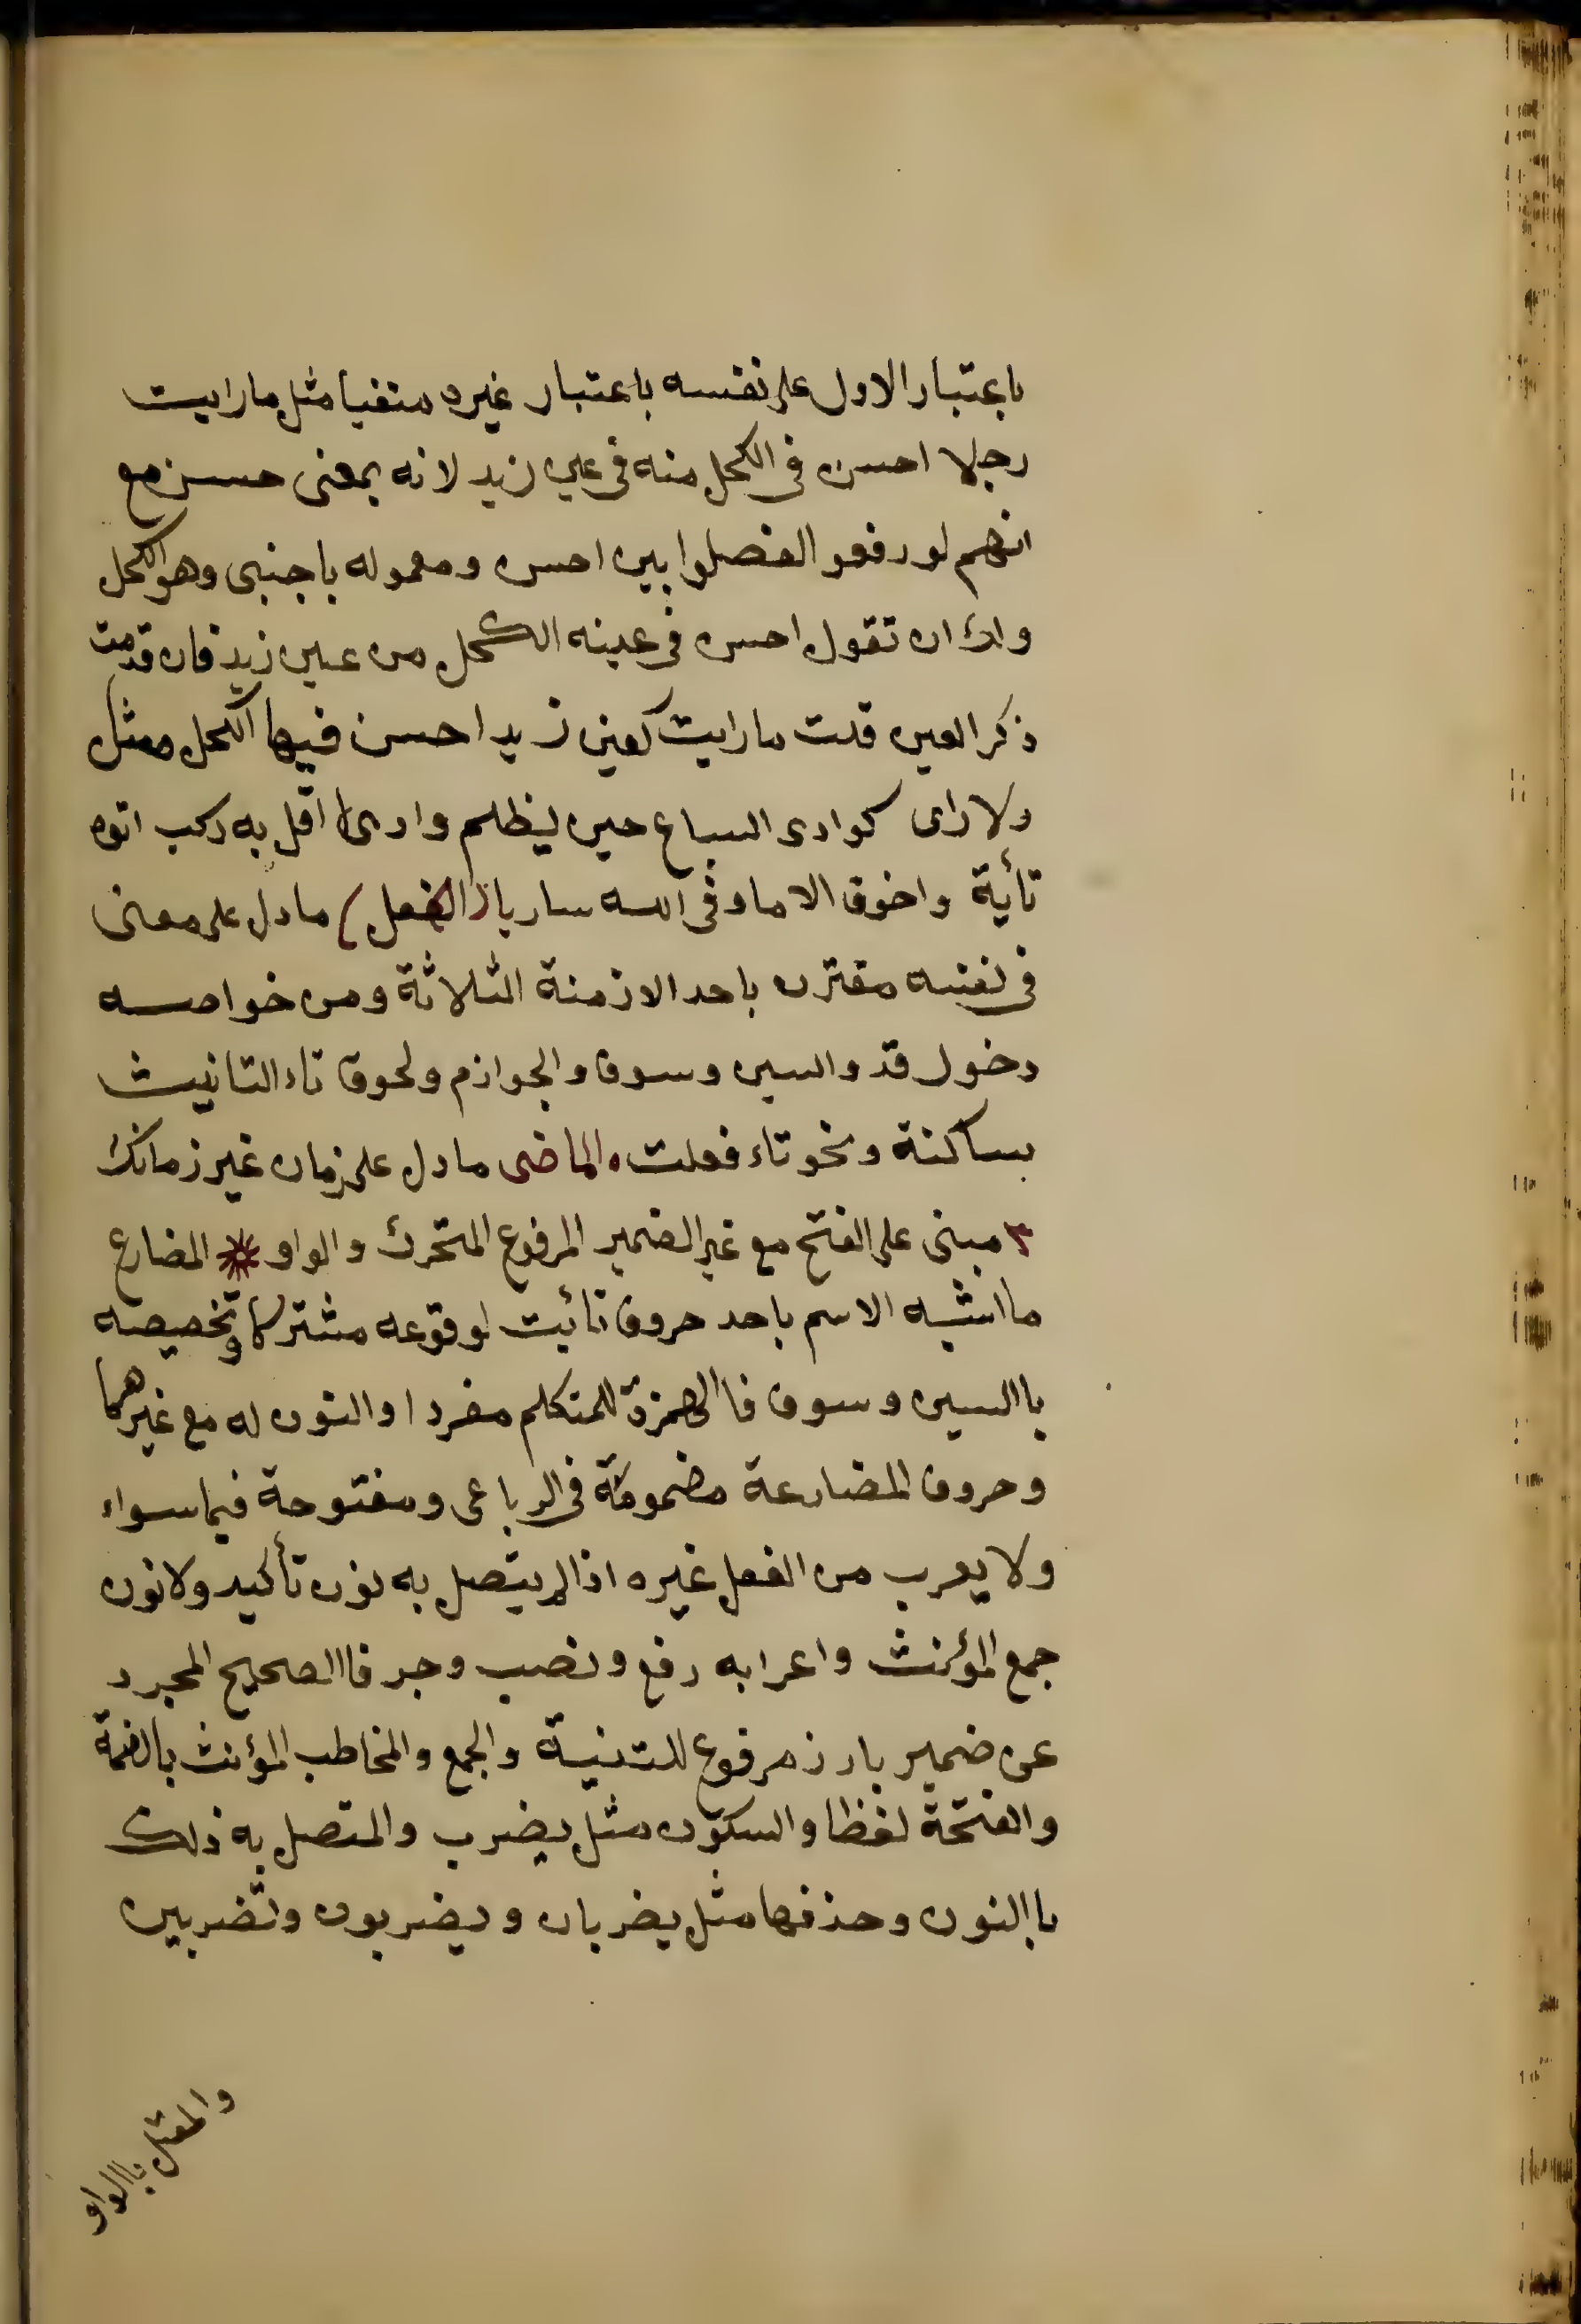 باعتبار الاول على نفسه باعتبار غيره منفيا مثل ما رايت
رجلا احسن فى الكحل منه فى عين زيد لانه بمعنى حسن مع
انهم لو رفعوا لفصلوا بين احسن ومعموله باجنبى وهو الكحل
ولك ان تقول احسن فى عينه الكحل من عين زيد فان قدمت
ذكر العين قلت ما رايت كعين زيد احسن فيها الكحل مثل
ولا ارى كوادى السباع حين يظلم واديا اقل به ركب اتوه
تأية واخوف الا ما وقى الله ساريا الفعل ما دل على معنى
فى نفسه مقترن باحد الازمنة الثلاثة ومن خواصه
دخول قد والسين وسوف والجوازم ولحوق تاء التانيث
ساكنة ونحو تاء فعلت الماضى ما دل على زمان غير زمانك
مبنى على الفتح مع غير الضمير المرفوع المتحرك والواو المضارع
ما اشبه الاسم باحد حروف نأيت لوقوعه مشتركا وتخصيصه
باالسين وسوف فاالهمزة للمتكلم مفردا والنون له مع غيرهما
وحروف المضارعة مضمومة فى الرباعى ومفتوحة فيما سواء
ولا يعرب من الفعل غيره اذا لم يتصل به نون تأكيد ولا نون
جمع المؤنث واعرابه رفع ونصب وجر فاالصحيح المجرد
عن ضمير بارز مرفوع للتنية والجمع والمخاطب المؤنث بالضمة
والفتحة لفظا والسكون مثل يضرب والمتصل به ذلك
باالنون وحذفها مثل يضربان ويضربون وتضربين
والمعتل باالواو